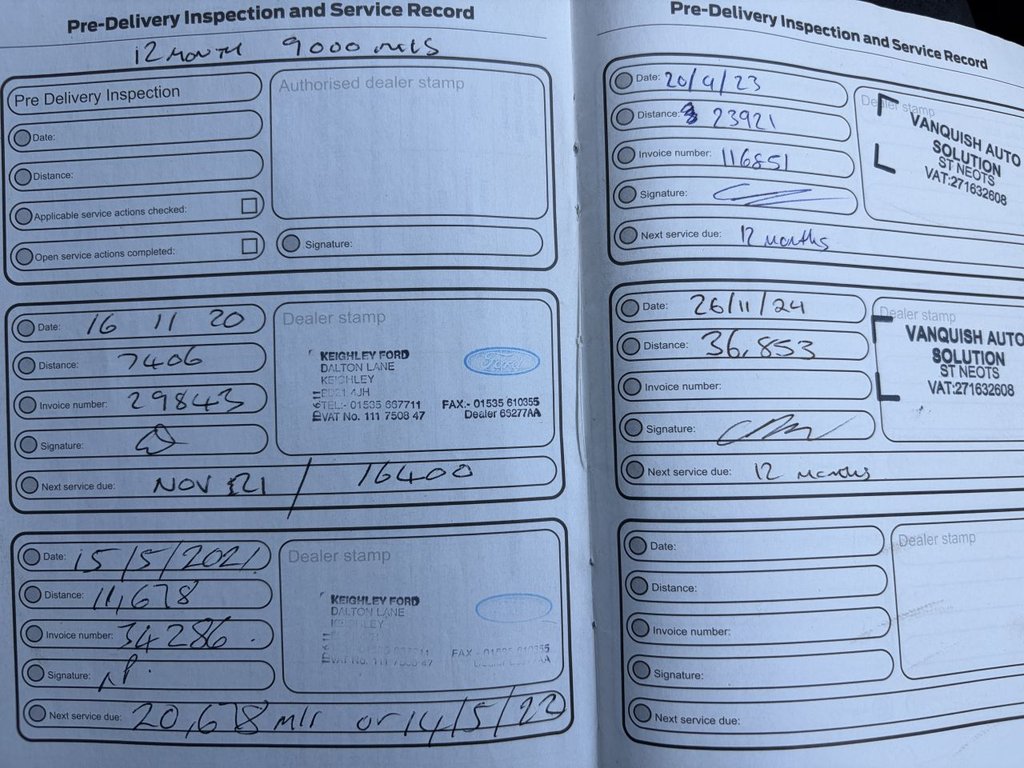 Pre-Delivery Inspection and Service Record
12 MONTH 9000 MILS
Pre Delivery Inspection
Date:
Distance:
Applicable service actions checked:
Open service actions completed:
Authorised dealer stamp
Signature:
Date: 16 11 20
Distance: 7406
Invoice number: 29843
Signature:
Next service due: NOV 21 / 16400
Dealer stamp
KEIGHLEY FORD
DALTON LANE
KEIGHLEY
BD21 4JH
TEL:- 01535 667711 FAX:- 01535 610355
VAT No. 111 7508 47 Dealer 65277AA
Ford
Date: 15/5/2021
Distance: 11,678
Invoice number: 34286.
Signature:
Next service due: 20,678 mlr or 14/5/22
Dealer stamp
KEIGHLEY FORD
DALTON LANE
KEIGHLEY
FAX - 01535 610355
VAT No. 111 7508 47
Pre-Delivery Inspection and Service Record
Date: 20/9/23
Distance: 23921
Invoice number: 116851
Signature:
Next service due: 12 months
Dealer stamp
VANQUISH AUTO
SOLUTION
ST NEOTS
VAT:271632608
Date: 26/11/24
Distance: 36,853
Invoice number:
Signature:
Next service due: 12 months
Dealer stamp
VANQUISH AUTO
SOLUTION
ST NEOTS
VAT:271632608
Date:
Distance:
Invoice number:
Signature:
Next service due:
Dealer stamp